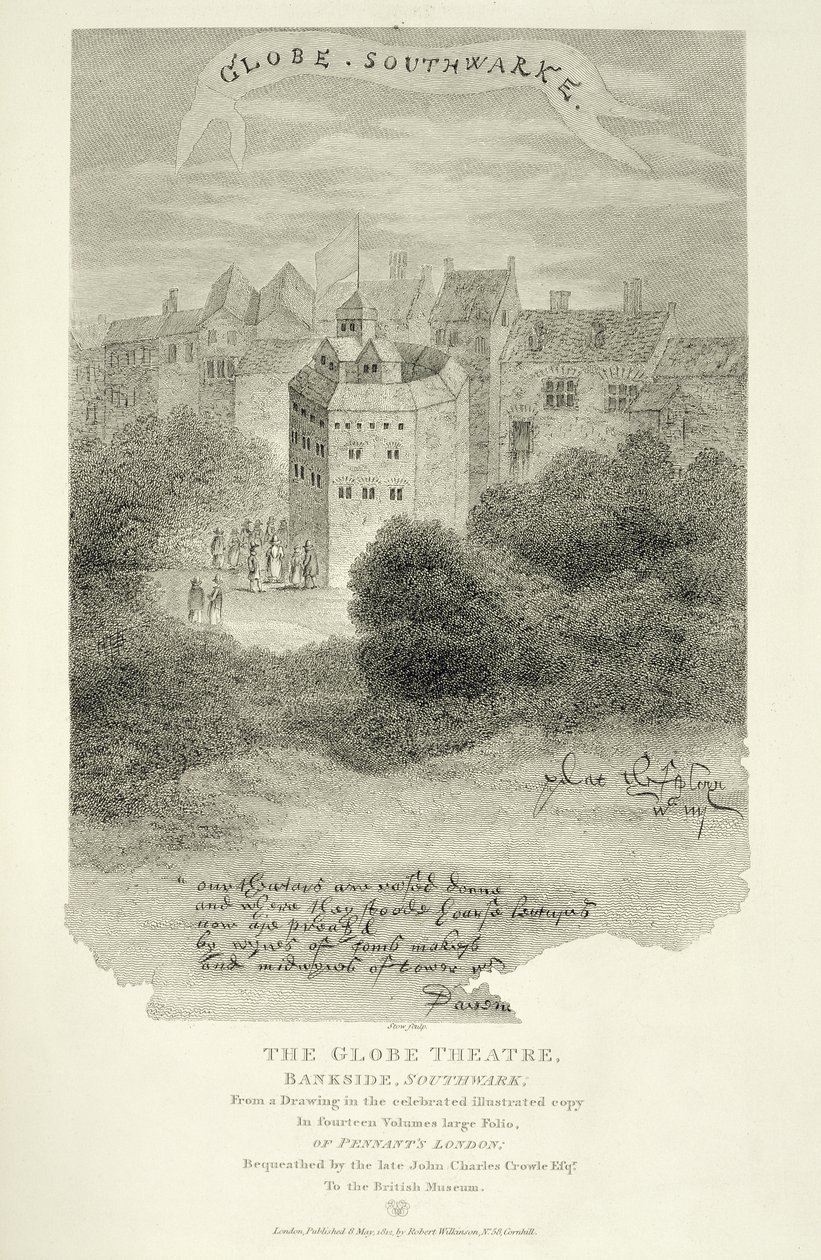 GLOBE . SOUTHWARKE.
"our theatars are rased downe
and where they stoode hoarse lectures
now are preach'd
by wyves of comb makers
and midwyves of tower wf
Daven
Stow sculp.
THE GLOBE THEATRE,
BANKSIDE, SOUTHWARK;
From a Drawing in the celebrated illustrated copy
In fourteen Volumes large Folio,
OF PENNANT'S LONDON;
Bequeathed by the late John Charles Crowle Esqr.
To the British Museum.
London, Published 8 May, 1812, by Robert Wilkinson, No. 58, Cornhill.